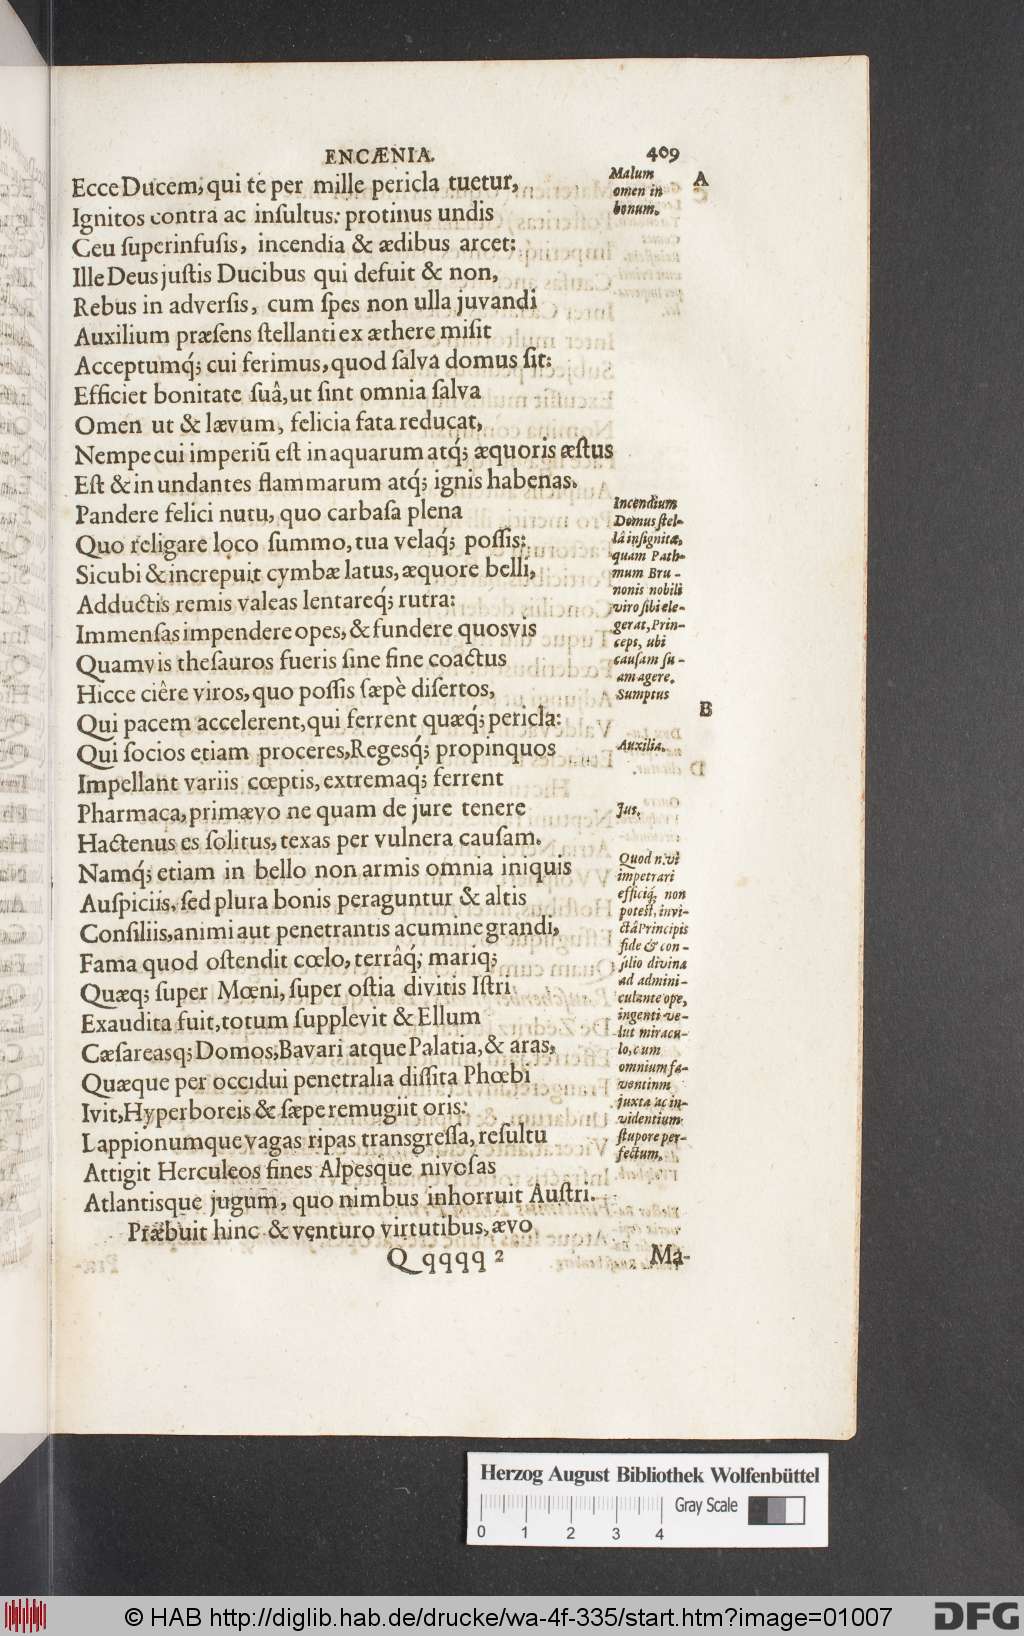 ENCÆNIA. 409
Ecce Ducem, qui te per mille pericla tuetur,
Ignitos contra ac inſultus: protinus undis
Ceu ſuperinfuſis, incendia & ædibus arcet:
Ille Deus juſtis Ducibus qui defuit & non,
Rebus in adverſis, cum ſpes non ulla juvandi
Auxilium præſens ſtellanti ex æthere miſit
Acceptumq́; cui ferimus, quod ſalva domus ſit:
Efficiet bonitate ſuâ, ut ſint omnia ſalva
Omen ut & lævum, felicia fata reducat,
Nempe cui imperiũ eſt in aquarum atq́; æquoris æſtus
Eſt & in undantes flammarum atq́; ignis habenas.
Pandere felici nutu, quo carbaſa plena
Quo religare loco ſummo, tua velaq́; poſſis:
Sicubi & increpuit cymbæ latus, æquore belli,
Adductis remis valeas lentareq́; rutra:
Immenſas impendere opes, & fundere quosvis
Quamvis theſauros fueris ſine fine coactus
Hicce ciêre viros, quo poſſis ſæpè diſertos,
Qui pacem accelerent, qui ferrent quæq́; pericla:
Qui ſocios etiam proceres, Regesq́; propinquos
Impellant variis cœptis, extremaq́; ferrent
Pharmaca, primævo ne quam de jure tenere
Hactenus es ſolitus, texas per vulnera cauſam.
Namq́; etiam in bello non armis omnia iniquis
Auſpiciis, ſed plura bonis peraguntur & altis
Conſiliis, animi aut penetrantis acumine grandi,
Fama quod oſtendit cœlo, terrâq́; mariq;
Quæq; ſuper Mœni, ſuper oſtia divitis Iſtri
Exaudita fuit, totum ſupplevit & Ellum
Cæſareasq; Domos, Bavari atque Palatia, & aras,
Quæque per occidui penetralia diſſita Phœbi
Ivit, Hyperboreis & ſæpe remugiit oris:
Lappionumque vagas ripas transgreſſa, reſultu
Attigit Herculeos fines Alpesque nivoſas
Atlantisque jugum, quo nimbus inhorruit Auſtri.
Præbuit hinc & venturo virtutibus, ævo
Q qqqq 2 Ma-
Malum
omen in
bonum.
A
Incendium
Domus ſtel-
lâ inſignitæ,
quam Path-
mum Bru-
nonis nobili
viro ſibi ele-
gerat, Prin-
ceps, ubi
cauſam ſu-
am agere.
Sumptus
B
Auxilia.
Jus.
Quod n. vi
impetrari
efficiq́; non
poteſt, invi-
ctâ Principis
fide & con-
ſilio divina
ad admini-
culante ope,
ingenti ve-
lut miracu-
lo, cum
omnium fa-
ventium
juxta ac in-
videntium
ſtupore per-
fectum.
Herzog August Bibliothek Wolfenbüttel
Gray Scale
0 1 2 3 4
© HAB http://diglib.hab.de/drucke/wa-4f-335/start.htm?image=01007
DFG